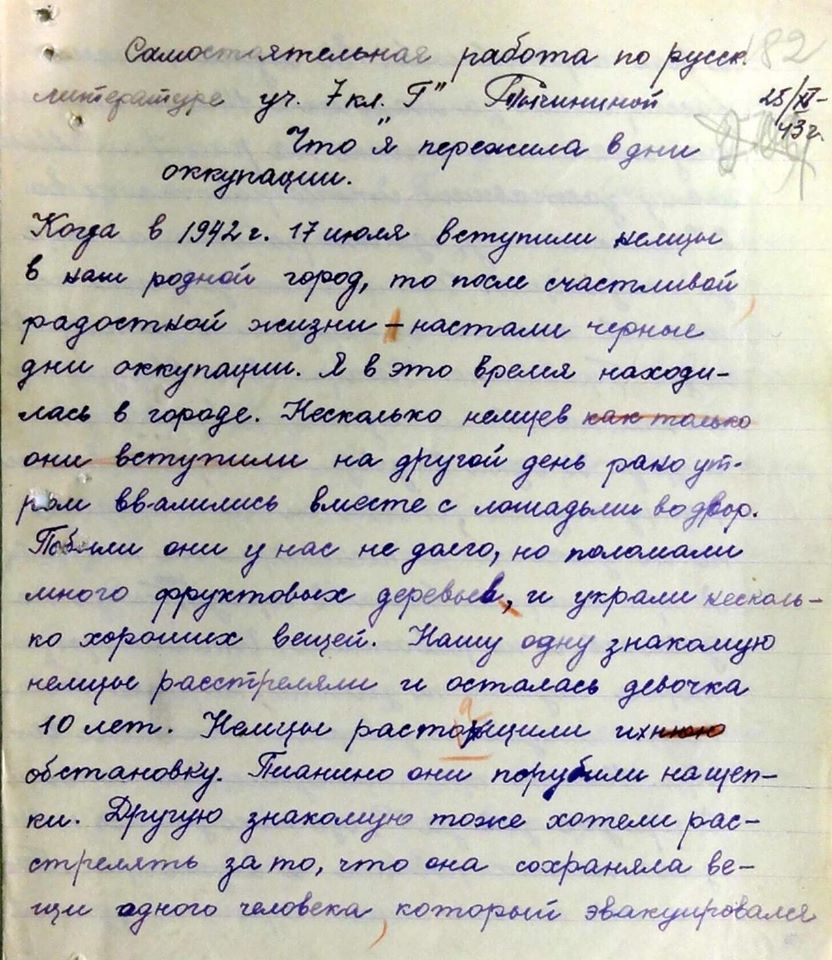 182
Самостоятельная работа по русск.
литературе уч. 7 кл. "Г" Тычининой 25/XI-
43 г.
Что "я пережила в дни
оккупации.
Когда в 1942 г. 17 июля вступили немцы
в наш родной город, то после счастливой
радостной жизни - настали черные
дни оккупации. Я в это время находи-
лась в городе. Несколько немцев как только
они вступили на другой день рано ут-
ром ввалились вместе с лошадьми во двор.
Побыли они у нас не долго, но поломали
много фруктовых деревьев, и украли несколь-
ко хороших вещей. Нашу одну знакомую
немцы расстреляли и осталась девочка
10 лет. Немцы растащили ихнюю
обстановку. Пианино они порубили на щеп-
ки. Другую знакомую тоже хотели рас-
стрелять за то, что она сохраняла ве-
щи одного человека, который эвакуировался